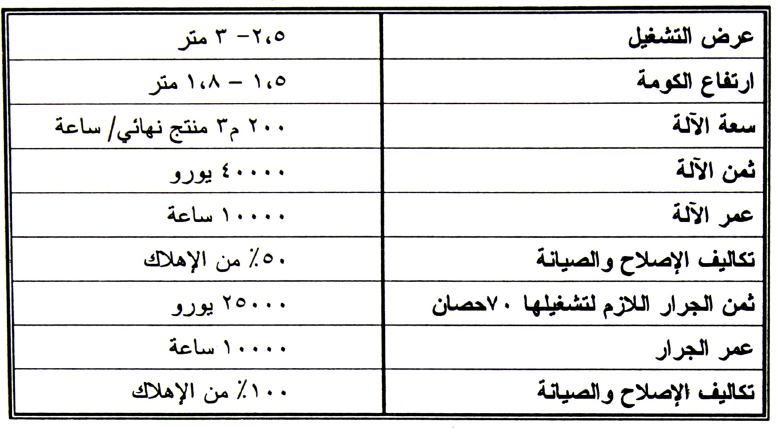 عرض التشغيل ٢،٥– ٣ متر
ارتفاع الكومة ١،٥ – ١،٨ متر
سعة الآلة ٢٠٠ م٣ منتج نهائي/ ساعة
ثمن الآلة ٤٠٠٠٠ يورو
عمر الآلة ١٠٠٠٠ ساعة
تكاليف الإصلاح والصيانة ٥٠٪ من الإهلاك
ثمن الجرار اللازم لتشغيلها ٧٠حصان ٢٥٠٠٠ يورو
عمر الجرار ١٠٠٠٠ ساعة
تكاليف الإصلاح والصيانة ١٠٠٪ من الإهلاك